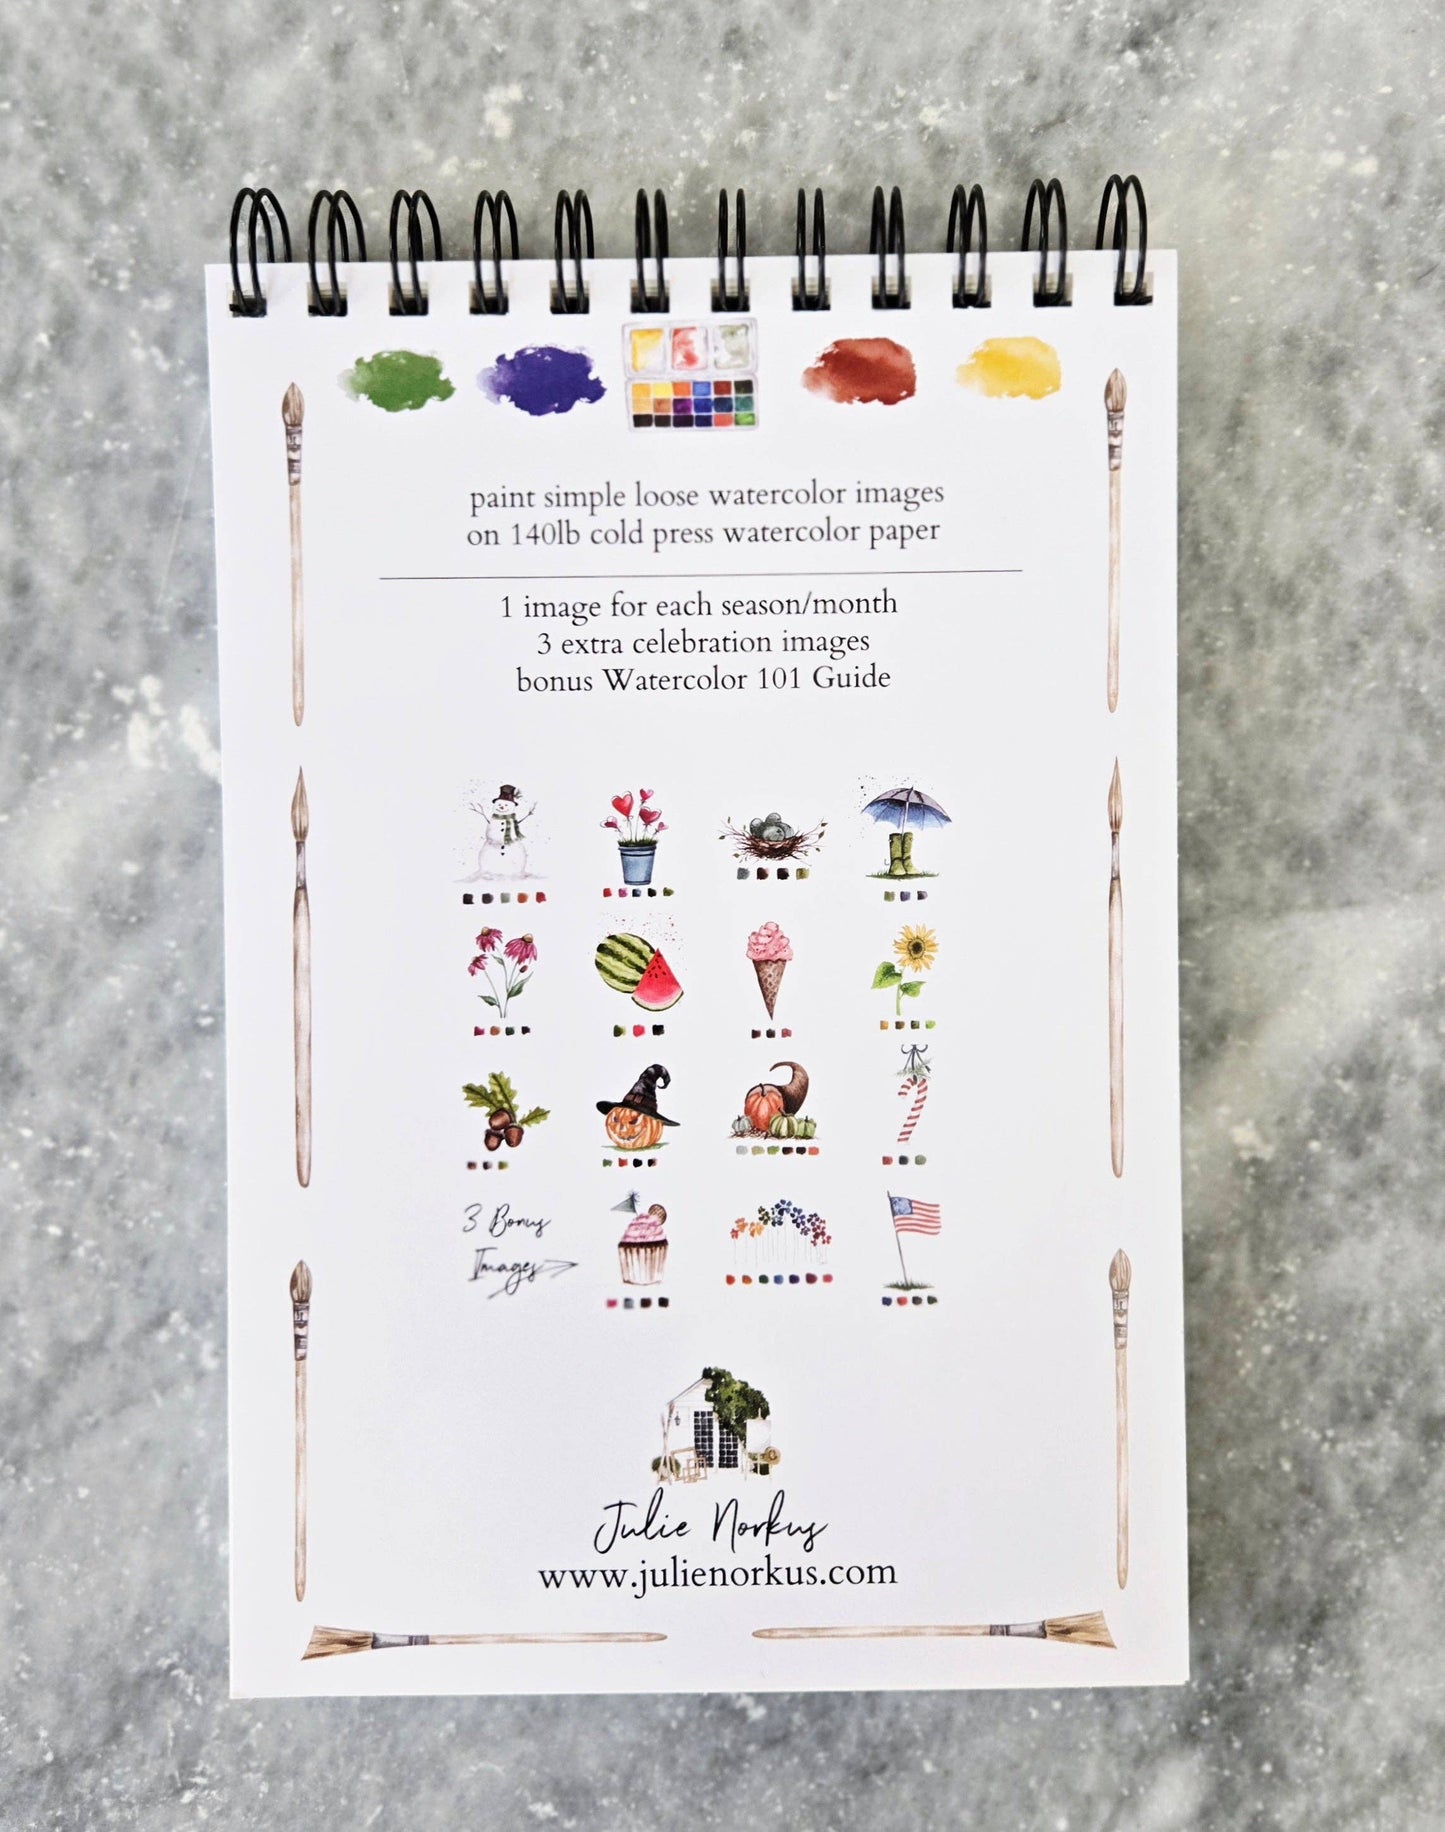 paint simple loose watercolor images
on 140lb cold press watercolor paper
1 image for each season/month
3 extra celebration images
bonus Watercolor 101 Guide
3 Bonus
Images
Julie Norkus
www.julienorkus.com